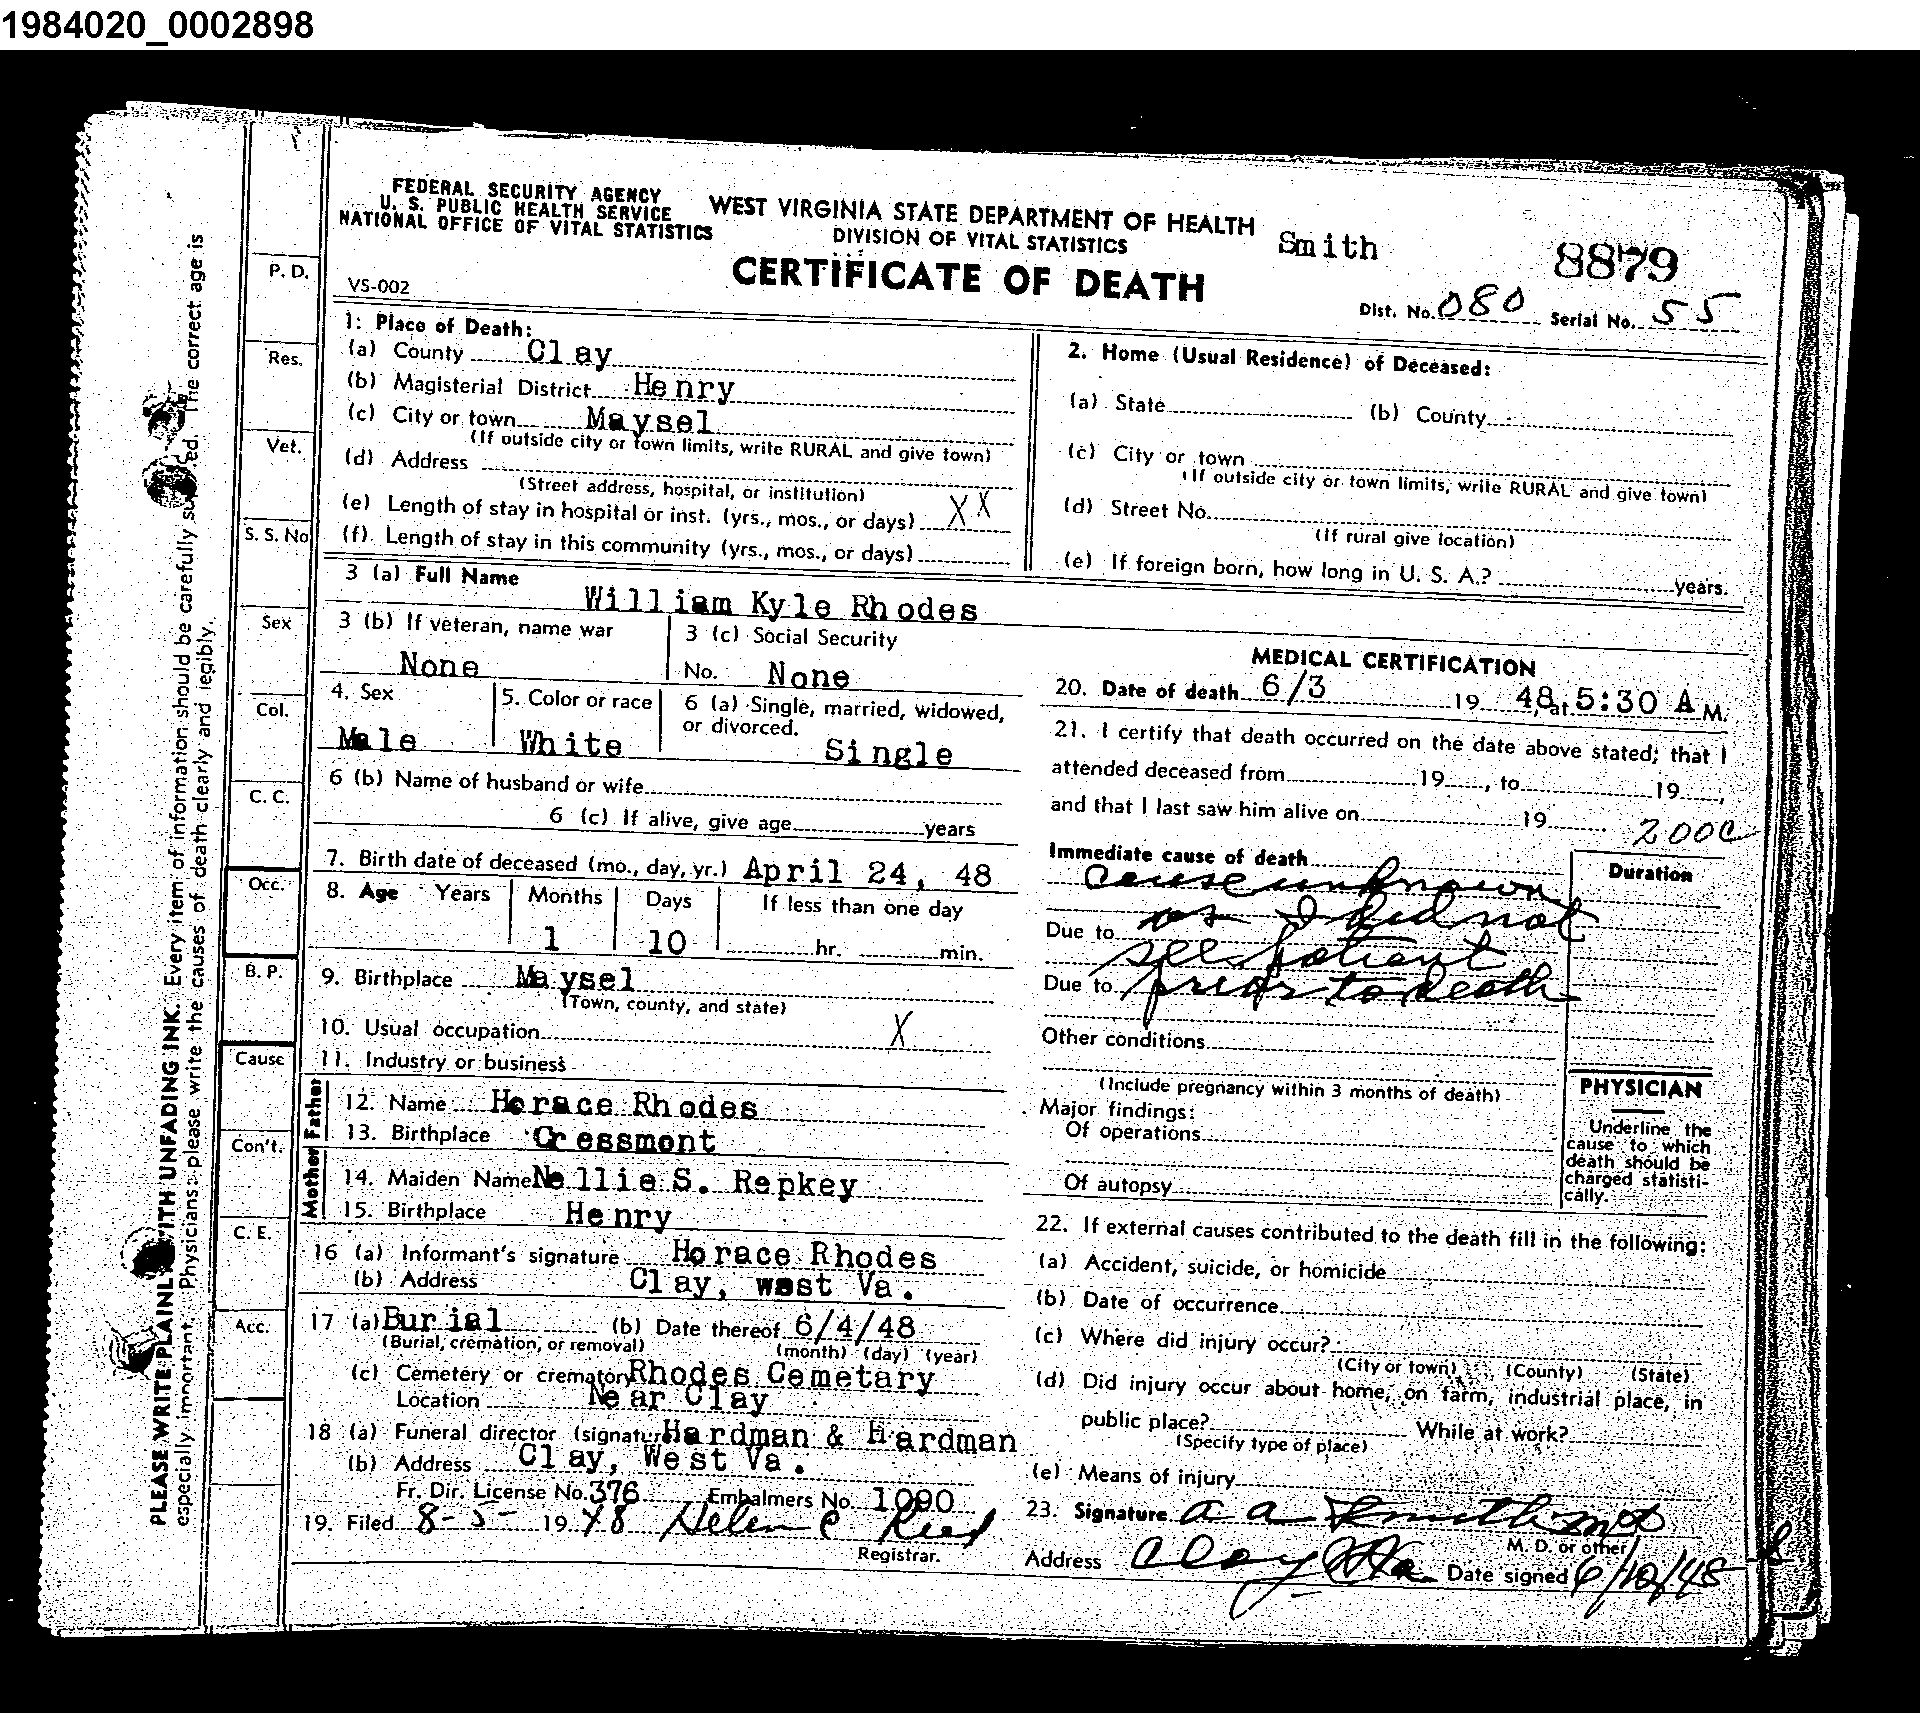 1984020_0002898
FEDERAL SECURITY AGENCY
U. S. PUBLIC HEALTH SERVICE
NATIONAL OFFICE OF VITAL STATISTICS
WEST VIRGINIA STATE DEPARTMENT OF HEALTH
DIVISION OF VITAL STATISTICS
CERTIFICATE OF DEATH
Smith
8879
VS-002
Dist. No. 080 Serial No. 55
1. Place of Death:
(a) County Clay
(b) Magisterial District Henry
(c) City or town Maysel
(If outside city or town limits, write RURAL and give town)
(d) Address
(Street address, hospital, or institution)
(e) Length of stay in hospital or inst. (yrs., mos., or days) XX
(f) Length of stay in this community (yrs., mos., or days)
2. Home (Usual Residence) of Deceased:
(a) State (b) County
(c) City or town
(If outside city or town limits, write RURAL and give town)
(d) Street No.
(If rural give location)
(e) If foreign born, how long in U. S. A.? years.
3 (a) Full Name William Kyle Rhodes
3 (b) If veteran, name war None
3 (c) Social Security No. None
4. Sex Male
5. Color or race White
6 (a) Single, married, widowed, or divorced. Single
6 (b) Name of husband or wife
6 (c) If alive, give age years
7. Birth date of deceased (mo., day, yr.) April 24, 48
8. Age Years Months Days If less than one day
1 10 hr. min.
9. Birthplace Maysel
(Town, county, and state)
10. Usual occupation X
11. Industry or business
Father
12. Name Horace Rhodes
13. Birthplace Cressmont
Mother
14. Maiden Name Nellie S. Repkey
15. Birthplace Henry
16 (a) Informant's signature Horace Rhodes
(b) Address Clay, west Va.
17 (a) Burial (b) Date thereof 6/4/48
(Burial, cremation, or removal) (month) (day) (year)
(c) Cemetery or crematory Rhodes Cemetary
Location Near Clay
18 (a) Funeral director (signature Hardman & Hardman
(b) Address Clay, West Va.
Fr. Dir. License No. 376 Embalmers No. 1090
19. Filed 8-5- 1948 Helen C Reed
Registrar.
MEDICAL CERTIFICATION
20. Date of death 6/3 19 48, at 5:30 A M.
21. I certify that death occurred on the date above stated; that I
attended deceased from 19 , to 19 ,
and that I last saw him alive on 19
200C
Immediate cause of death
Duration
cause unknown
Due to as I did not
see patient
Due to prior to death
Other conditions
(Include pregnancy within 3 months of death)
Major findings:
Of operations
Of autopsy
PHYSICIAN
Underline the
cause to which
death should be
charged statisti-
cally.
22. If external causes contributed to the death fill in the following:
(a) Accident, suicide, or homicide
(b) Date of occurrence
(c) Where did injury occur?
(City or town) (County) (State)
(d) Did injury occur about home, on farm, industrial place, in
public place? While at work?
(Specify type of place)
(e) Means of injury
23. Signature A A Smith MD
M. D. or other
Address Clay W Va. Date signed 6/12/48
P. D.
Res.
Vet.
S. S. No
Sex
Col.
C. C.
Occ.
B. P.
Cause
Con't.
C. E.
Acc.
PLEASE WRITE PLAINLY WITH UNFADING INK. Every item of information should be carefully The correct age is
especially important. Physicians: please write the causes of death clearly and legibly.